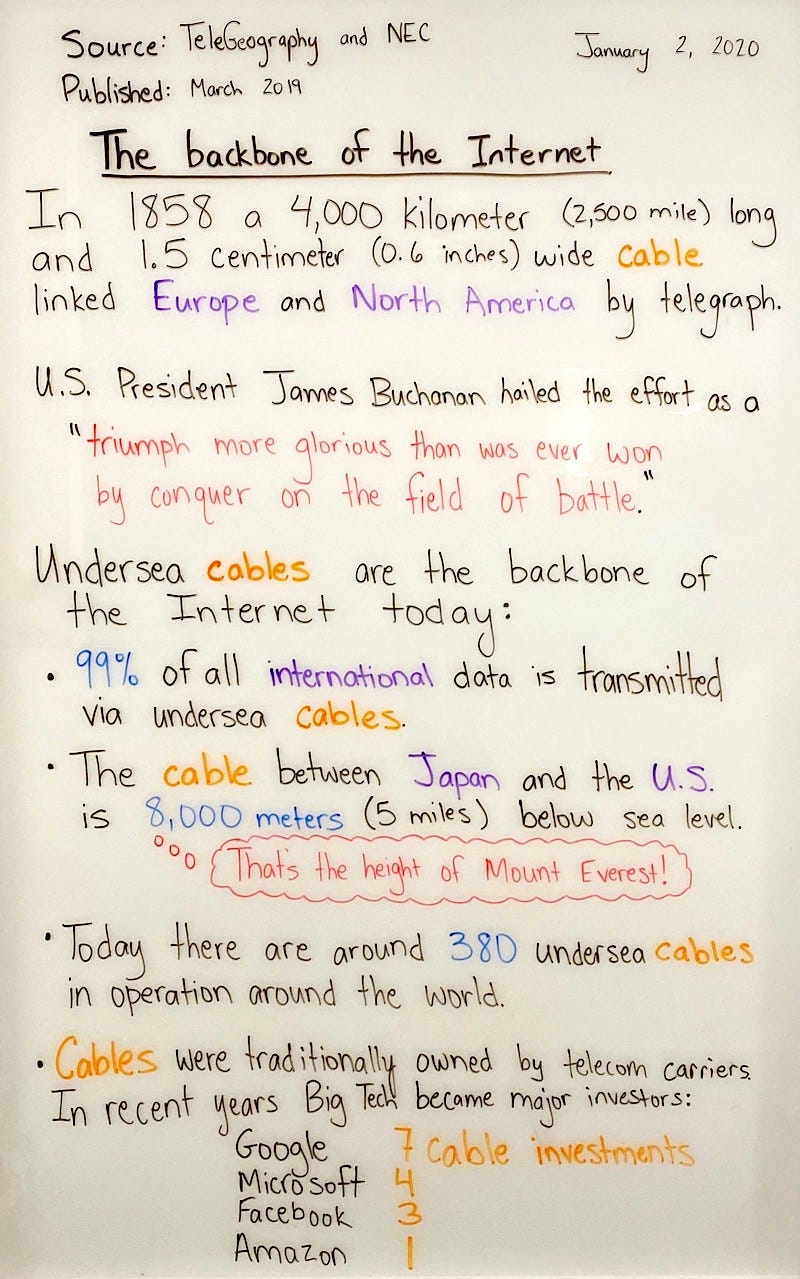 Source: TeleGeography and NEC
January 2, 2020
Published: March 2019
The backbone of the Internet
In 1858 a 4,000 kilometer (2,500 mile) long
and 1.5 centimeter (0.6 inches) wide cable
linked Europe and North America by telegraph.
U.S. President James Buchanan hailed the effort as a
"triumph more glorious than was ever won
by conquer on the field of battle."
Undersea cables are the backbone of
the Internet today:
• 99% of all international data is transmitted
via undersea cables.
• The cable between Japan and the U.S.
is 8,000 meters (5 miles) below sea level.
That's the height of Mount Everest!
• Today there are around 380 undersea cables
in operation around the world.
• Cables were traditionally owned by telecom carriers.
In recent years Big Tech became major investors:
Google 7 cable investments
Microsoft 4
Facebook 3
Amazon 1